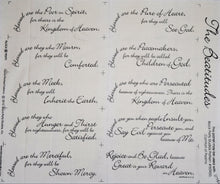 Blessed are the Poor in Spirit,
for theirs is the
Kingdom of Heaven.
Blessed are they who Mourn,
for they will be
Comforted.
Blessed are the Meek,
for they will
Inherit the Earth.
Blessed are they who
Hunger and Thirst
for righteousness, for they will be
Satisfied.
Blessed are the Merciful,
for they will be
Shown Mercy.
Blessed are the Pure of Heart,
for they will
See God.
Blessed are the Peacemakers,
for they will be called
Children of God.
Blessed are they who are Persecuted
because of righteousness. Theirs is the
Kingdom of Heaven.
Blessed are you when people Insult you,
Persecute you and
Rejoice and Be Glad, because
Great is your Reward
in Heaven.
The Beatitudes